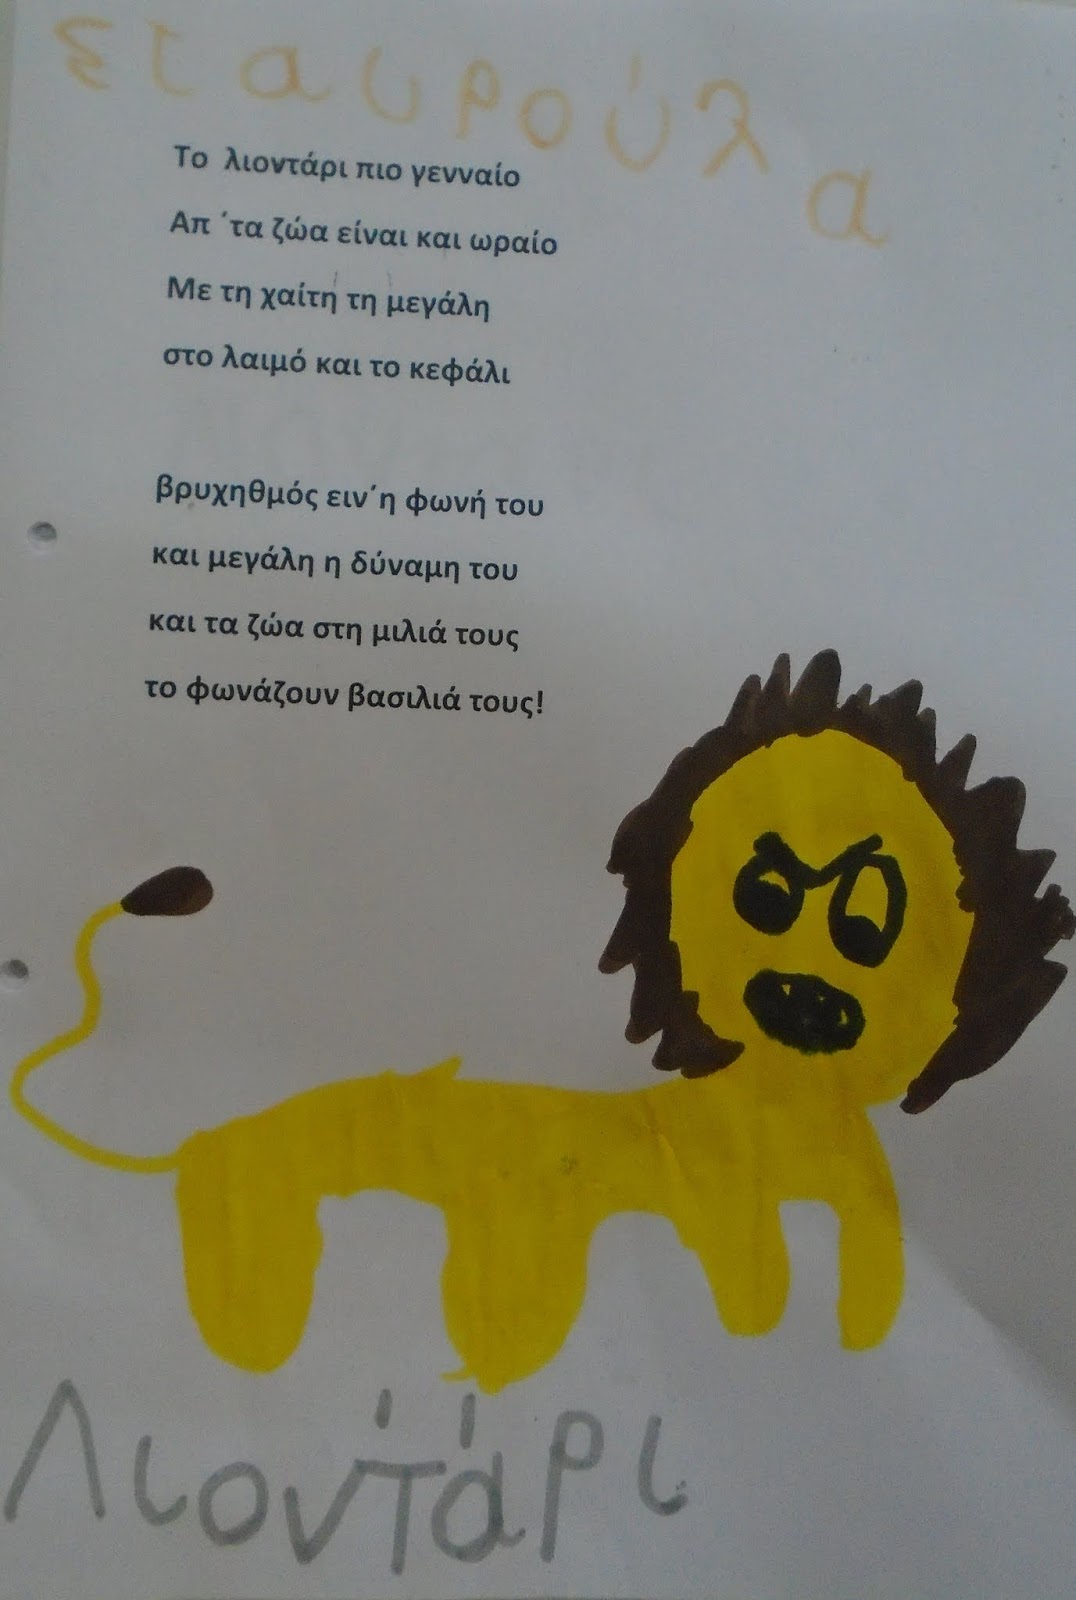 Σταυρούλα
Το λιοντάρι πιο γενναίο
Απ ΄τα ζώα είναι και ωραίο
Με τη χαίτη τη μεγάλη
στο λαιμό και το κεφάλι
βρυχηθμός ειν΄η φωνή του
και μεγάλη η δύναμη του
και τα ζώα στη μιλιά τους
το φωνάζουν βασιλιά τους!
Λιοντάρι